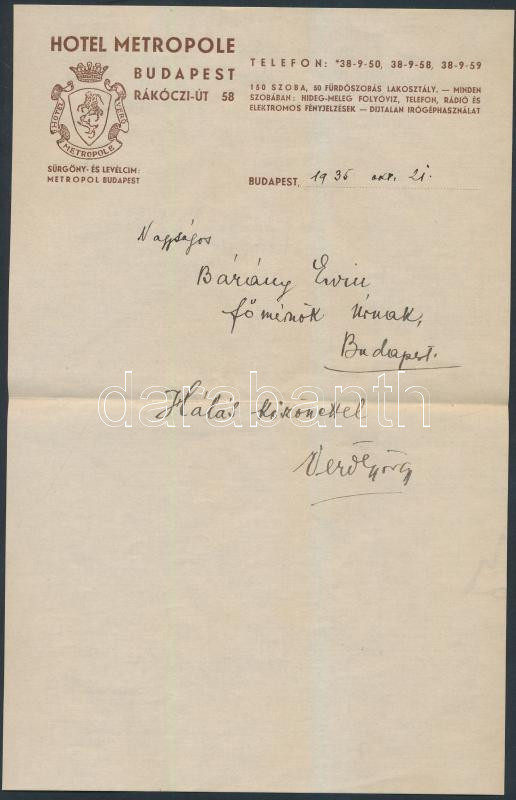 HOTEL METROPOLE
BUDAPEST
RÁKÓCZI-ÚT 58
HOTEL VERŐ
METROPOLE
SÜRGÖNY- ÉS LEVÉLCIM:
METROPOL BUDAPEST
TELEFON: *38-9-50, 38-9-58, 38-9-59
150 SZOBA, 50 FÜRDŐSZOBÁS LAKOSZTÁLY. — MINDEN
SZOBÁBAN: HIDEG-MELEG FOLYÓVIZ, TELEFON, RÁDIÓ ÉS
ELEKTROMOS FÉNYJELZÉSEK — DIJTALAN IRÓGÉPHASZNÁLAT
BUDAPEST, 1935 okt. 21.
Nagyságos
Bárány Ervin
főmérnök Úrnak,
Budapest.
Hálás köszönettel
Verő György
darabanth.com